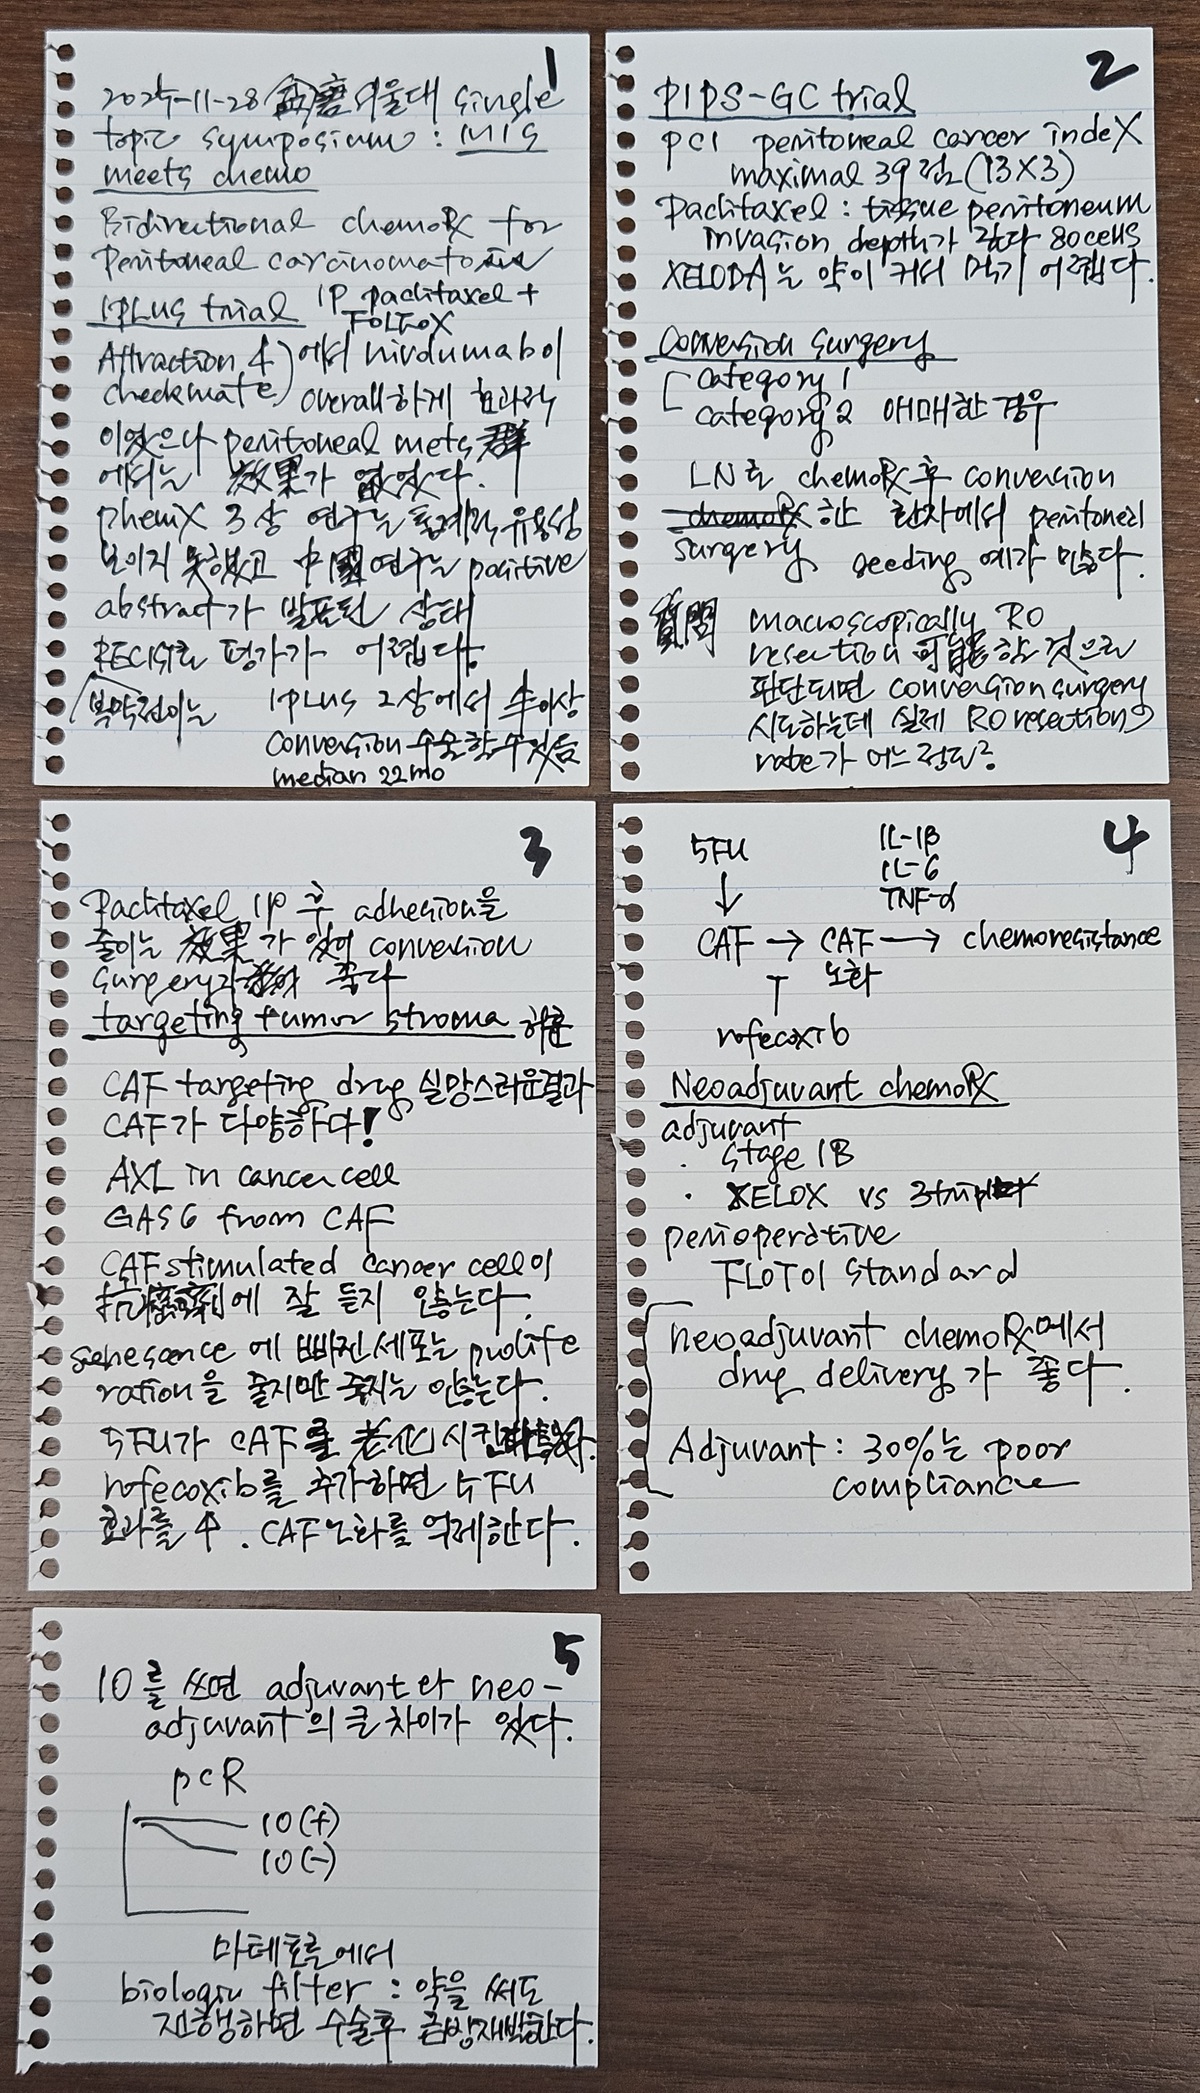 1
2025-11-28 서울대 single
topic symposium : MIS
meets chemo
Bidirectional chemoRx for
Peritoneal carcinomatosis
IPLUS trial IP paclitaxel +
FOLFOX
Attraction 4
checkmate
에서 nivolumab이
overall하게 효과적
이었으나 peritoneal mets 群
에서는 效果가 없었다.
pheniX 3상 연구는 통계적 유용성
보이지 못했고 中國 연구는 positive
abstract가 발표된 상태
RECIST로 평가가 어렵다
복막전이는 IPLUS 2상에서 半이상
conversion 수술할 수 있음
median 22mo
2
PIPS-GC trial
PCI peritoneal cancer index
maximal 39점 (13X3)
Paclitaxel : tissue peritoneum
invasion depth가 깊다 80cells
XELODA는 약이 커서 먹기 어렵다.
Conversion surgery
category 1
category 2 애매한 경우
LN로 chemoRx 후 conversion
chemoRx 한 환자에서 peritoneal
surgery seeding 예가 많다.
質問 macroscopically R0
resection 可能할 것으로
판단되면 conversion surgery
시도하는데 실제 R0 resection
rate가 어느 정도?
3
Paclitaxel IP 후 adhesion을
줄이는 效果가 있어 conversion
surgery가 좋다
targeting tumor stroma 허훈
CAF targeting drug 실망스러운결과
CAF가 다양하다!
AXL in cancer cell
GAS6 from CAF
CAF stimulated cancer cell이
抗癌劑에 잘 듣지 않는다.
senescence에 빠진세포는 prolife
ration을 줄지만 죽지는 않는다.
5FU가 CAF를 老化시킨다
rofecoxib를 추가하면 5FU
효과를 ↑. CAF노화를 억제한다.
4
5FU IL-1β
IL-6
↓ TNF-α
CAF → CAF → chemoresistance
노화
⊤
rofecoxib
Neoadjuvant chemoRx
adjuvant
· stage IB
· XELOX vs 3triplet
perioperative
FLOT01 standard
neoadjuvant chemoRx에서
drug delivery가 좋다.
Adjuvant : 30%는 poor
compliance
5
IO를 쓰면 adjuvant와 neo-
adjuvant의 큰 차이가 있다.
pCR
IO (+)
IO (-)
마테호른에서
biologic filter : 약을 써도
진행하면 수술후 금방재발한다.